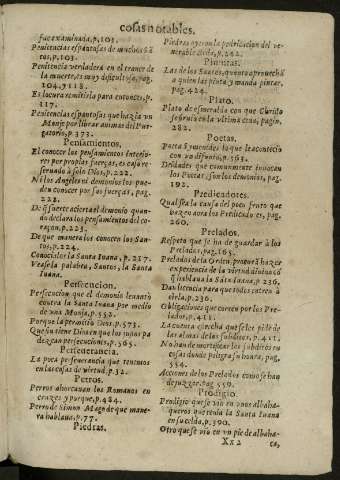 cosas notables.
fue examinada, p. 103.
Penitencias espantosas de muchos sã
tos, p. 103.
Penitencia verdadera en el trance de
la muerte, es muy dificultosa, pag.
104. y 118.
Es locura remitirla para entonces, p.
117.
Penitencias espantosas que hazia un
Monje por librar animas del Pur-
gatorio, p. 373.
Pensamientos.
El conocer los pensamientos interio-
res por propias fuerças, es caso re-
servado à solo Dios, p. 222.
Ni los Angeles ni demonios los pue-
den conocer por sus fuerças, pag.
222.
De q̃ suerte acierta el demonio quan-
do declara los pensamientos del co-
raçon, p. 223.
De que manera los conocen los San-
tos, p. 224.
Conociolos la Santa Iuana, p. 217.
Vease la palabra, Santos, la Santa
Iuana.
Persecucion.
Persecucion que el demonio levantò
contra la Santa Iuana por medio
de una Monja, p. 552.
Porque la permitio Dios, p. 573.
Quexase Dios en que los suyos pa-
dezcan persecuciones, p. 565.
Perseverancia.
La poca perseverancia que tenemos
en las cosas de virtud, p. 32.
Perros.
Perros ahorcavan los Romanos en
cruzes y porque, p. 484.
Perro de Simon Mago de que mane-
ra hablava, p. 77.
Piedras.
Piedras oyeron la predicacion del ve-
nerable Beda, p. 242.
Pinturas.
Las de los Santos, quanto aprovechã
à quien las manda y manda pintar,
pag. 424.
Plato.
Plato de esmeralda con que Christo
se sirvio en la ultima cena, pagin.
282.
Poetas.
Poeta Symonides lo que le acontecio
con un difunto, p. 563.
Deidades que comunmente invocan
los Poetas, son los demonios, pag.
192.
Predicadores.
Qual sea la causa del poco fruto que
hazen aora los Predicadores, pag.
260.
Prelados.
Respeto que se ha de guardar à los
Prelados, pag. 165.
Prelados de la Orden, procurã hazer
experiencia de la virtud divina cõ
q̃ hablava la Santa Iuana, p. 236.
Dan licencia para que todos entren à
oirla, p. 236.
Obligaciones que corren por los Pre-
lados, p. 411.
La cuenta estrecha que se les pide de
las almas de los subditos, p. 411.
No han de mortificar los subditos en
cosas donde peligra su honra, pag.
554.
Acciones de los Prelados como se han
de juzgar, pag. 550.
Prodigio.
Prodigio que se vio en unos albaha-
queros que tenia la Santa Iuana
en su celda, p. 390.
Otro que se vio en un pie de albaha-
Xx 2
ca,